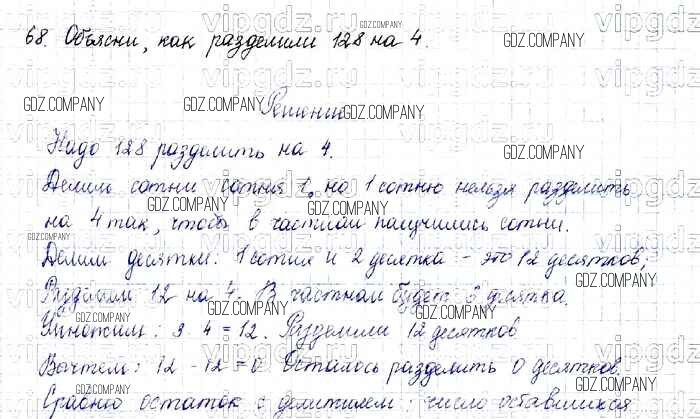 68. Объясни, как разделили 128 на 4.
Решение
Надо 128 разделить на 4.
Делим сотни сотня 1, на 1 сотню нельзя разделить
на 4 так, чтобы в частном получились сотни.
Делим десятки: 1 сотня и 2 десятка - это 12 десятков,
Разделим 12 на 4. В частном будет 3 десятка.
Умножим: 3 4 = 12. Разделили 12 десятков
Вычтем: 12 - 12 = 0 Осталось разделить 0 десятков.
Сравню остаток с делителем: число оставшихся
GDZ.COMPANY
GDZ.COMPANY
GDZ.COMPANY
GDZ.COMPANY
GDZ.COMPANY
GDZ.COMPANY
GDZ.COMPANY
GDZ.COMPANY
GDZ.COMPANY
GDZ.COMPANY
GDZ.COMPANY
GDZ.COMPANY
GDZ.COMPANY